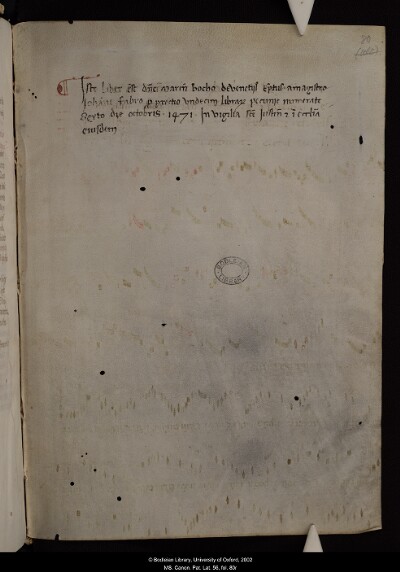 Iste liber est dñi Marci bocho deVenetijs Eptus amagistro
Johãne fabro p pretio Vndecim librar pecunie numerate
Sexto die octobris · 1471 · In Vigilia Sctẽ Justine & ĩ ecclia
eiusdem
BODLEIAN LIBRARY
© Bodleian Library, University of Oxford, 2002
MS. Canon. Pat. Lat. 56, fol. 80r